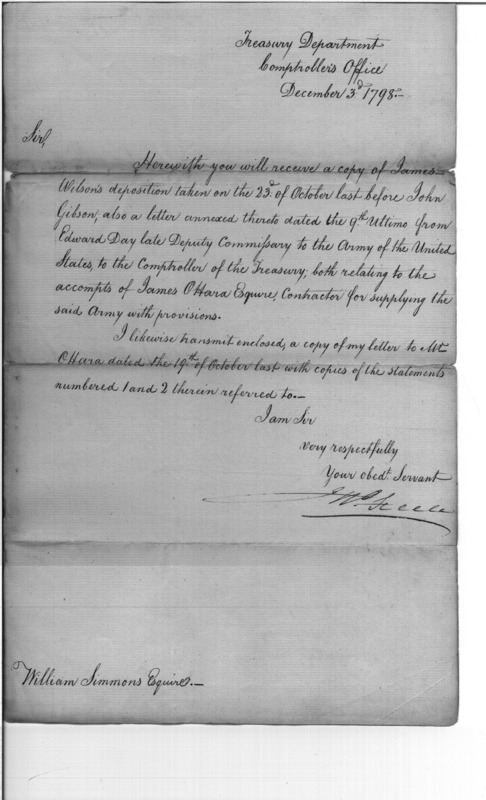 Treasury Department
Comptroller's Office
December 3.d 1798.—
Sir,
Herewith you will receive a copy of James
Wilson's deposition taken on the 23.d of October last before John
Gibson, also a letter annexed thereto dated the 9.th Ultimo from
Edward Day late Deputy Commissary to the Army of the United
States, to the Comptroller of the Treasury, both relating to the
accompts of James OHara Esquire, Contractor for supplying the
said Army with provisions.
I likewise transmit enclosed, a copy of my letter to Mr.
OHara dated the 19.th of October last with copies of the statements
numbered 1 and 2 therein referred to.—
I am Sir
very respectfully
Your obed.t Servant
Jn.o Steele
William Simmons Esquire.—